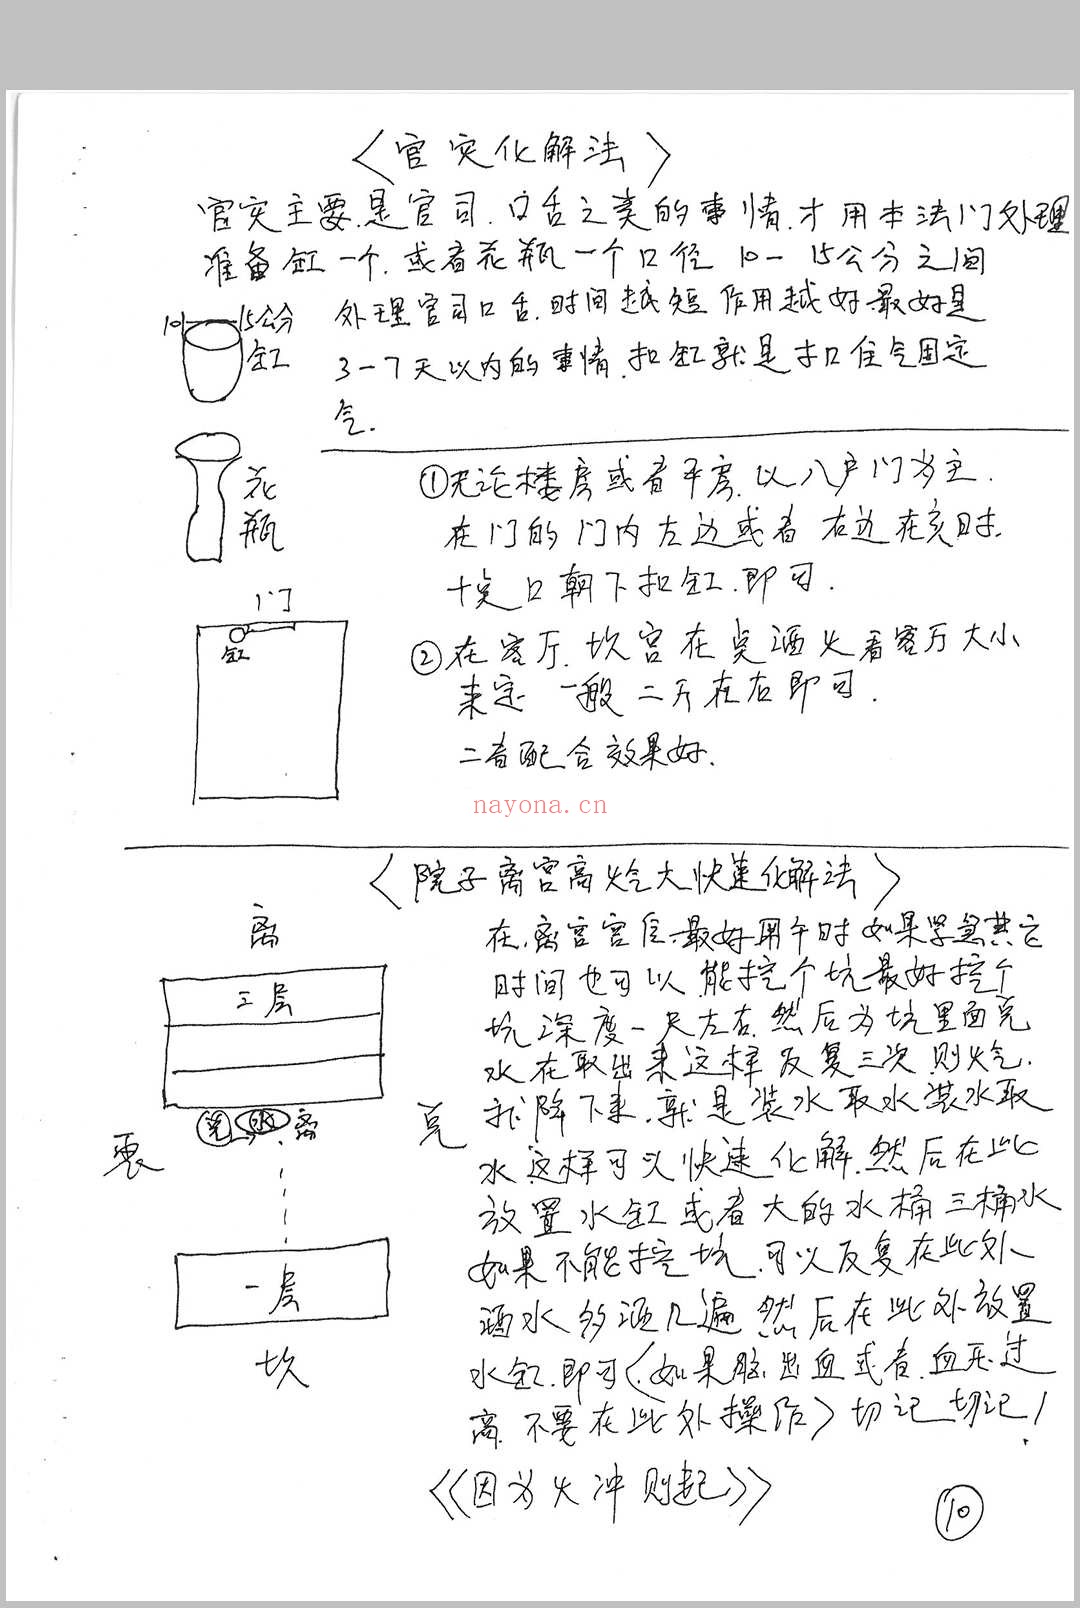 〈官灾化解法〉
官灾主要是官司.口舌之类的事情.才用本法门处理
准备缸一个.或者花瓶一个口径 10－15公分之间
10 15公分
缸
处理官司口舌.时间越短 作用越好.最好是
3－7天以内的事情.扣缸就是扣住气固定
气.
花
瓶
①无论楼房或者平房.以入户门为主.
在门的门内左边或者右边在亥时.
十点口朝下扣缸.即可.
门
缸
②在客厅.坎宫在点酒火看客厅大小
来定 一般二斤左右即可.
二者配合效果好.
nayona.cn
〈院子离宫高火气大快速化解法〉
离
三层
水 离
震
兑
一层
坎
在离宫宫位.最好用午时如果紧急其它
时间也可以.能挖个坑最好挖个
坑深度一尺左右.然后为坑里面克
水在取出来这样反复三次则火气.
就降下来.就是装水取水装水取
水这样可以快速化解.然后在此
放置水缸或者大的水桶三桶水
如果不能挖坑.可以反复在此处
洒水多洒几遍然后在此处放置
水缸.即可(.如果脑出血或者.血压过
高.不要在此处操作〉切记切记!
《因为火冲则起》
10